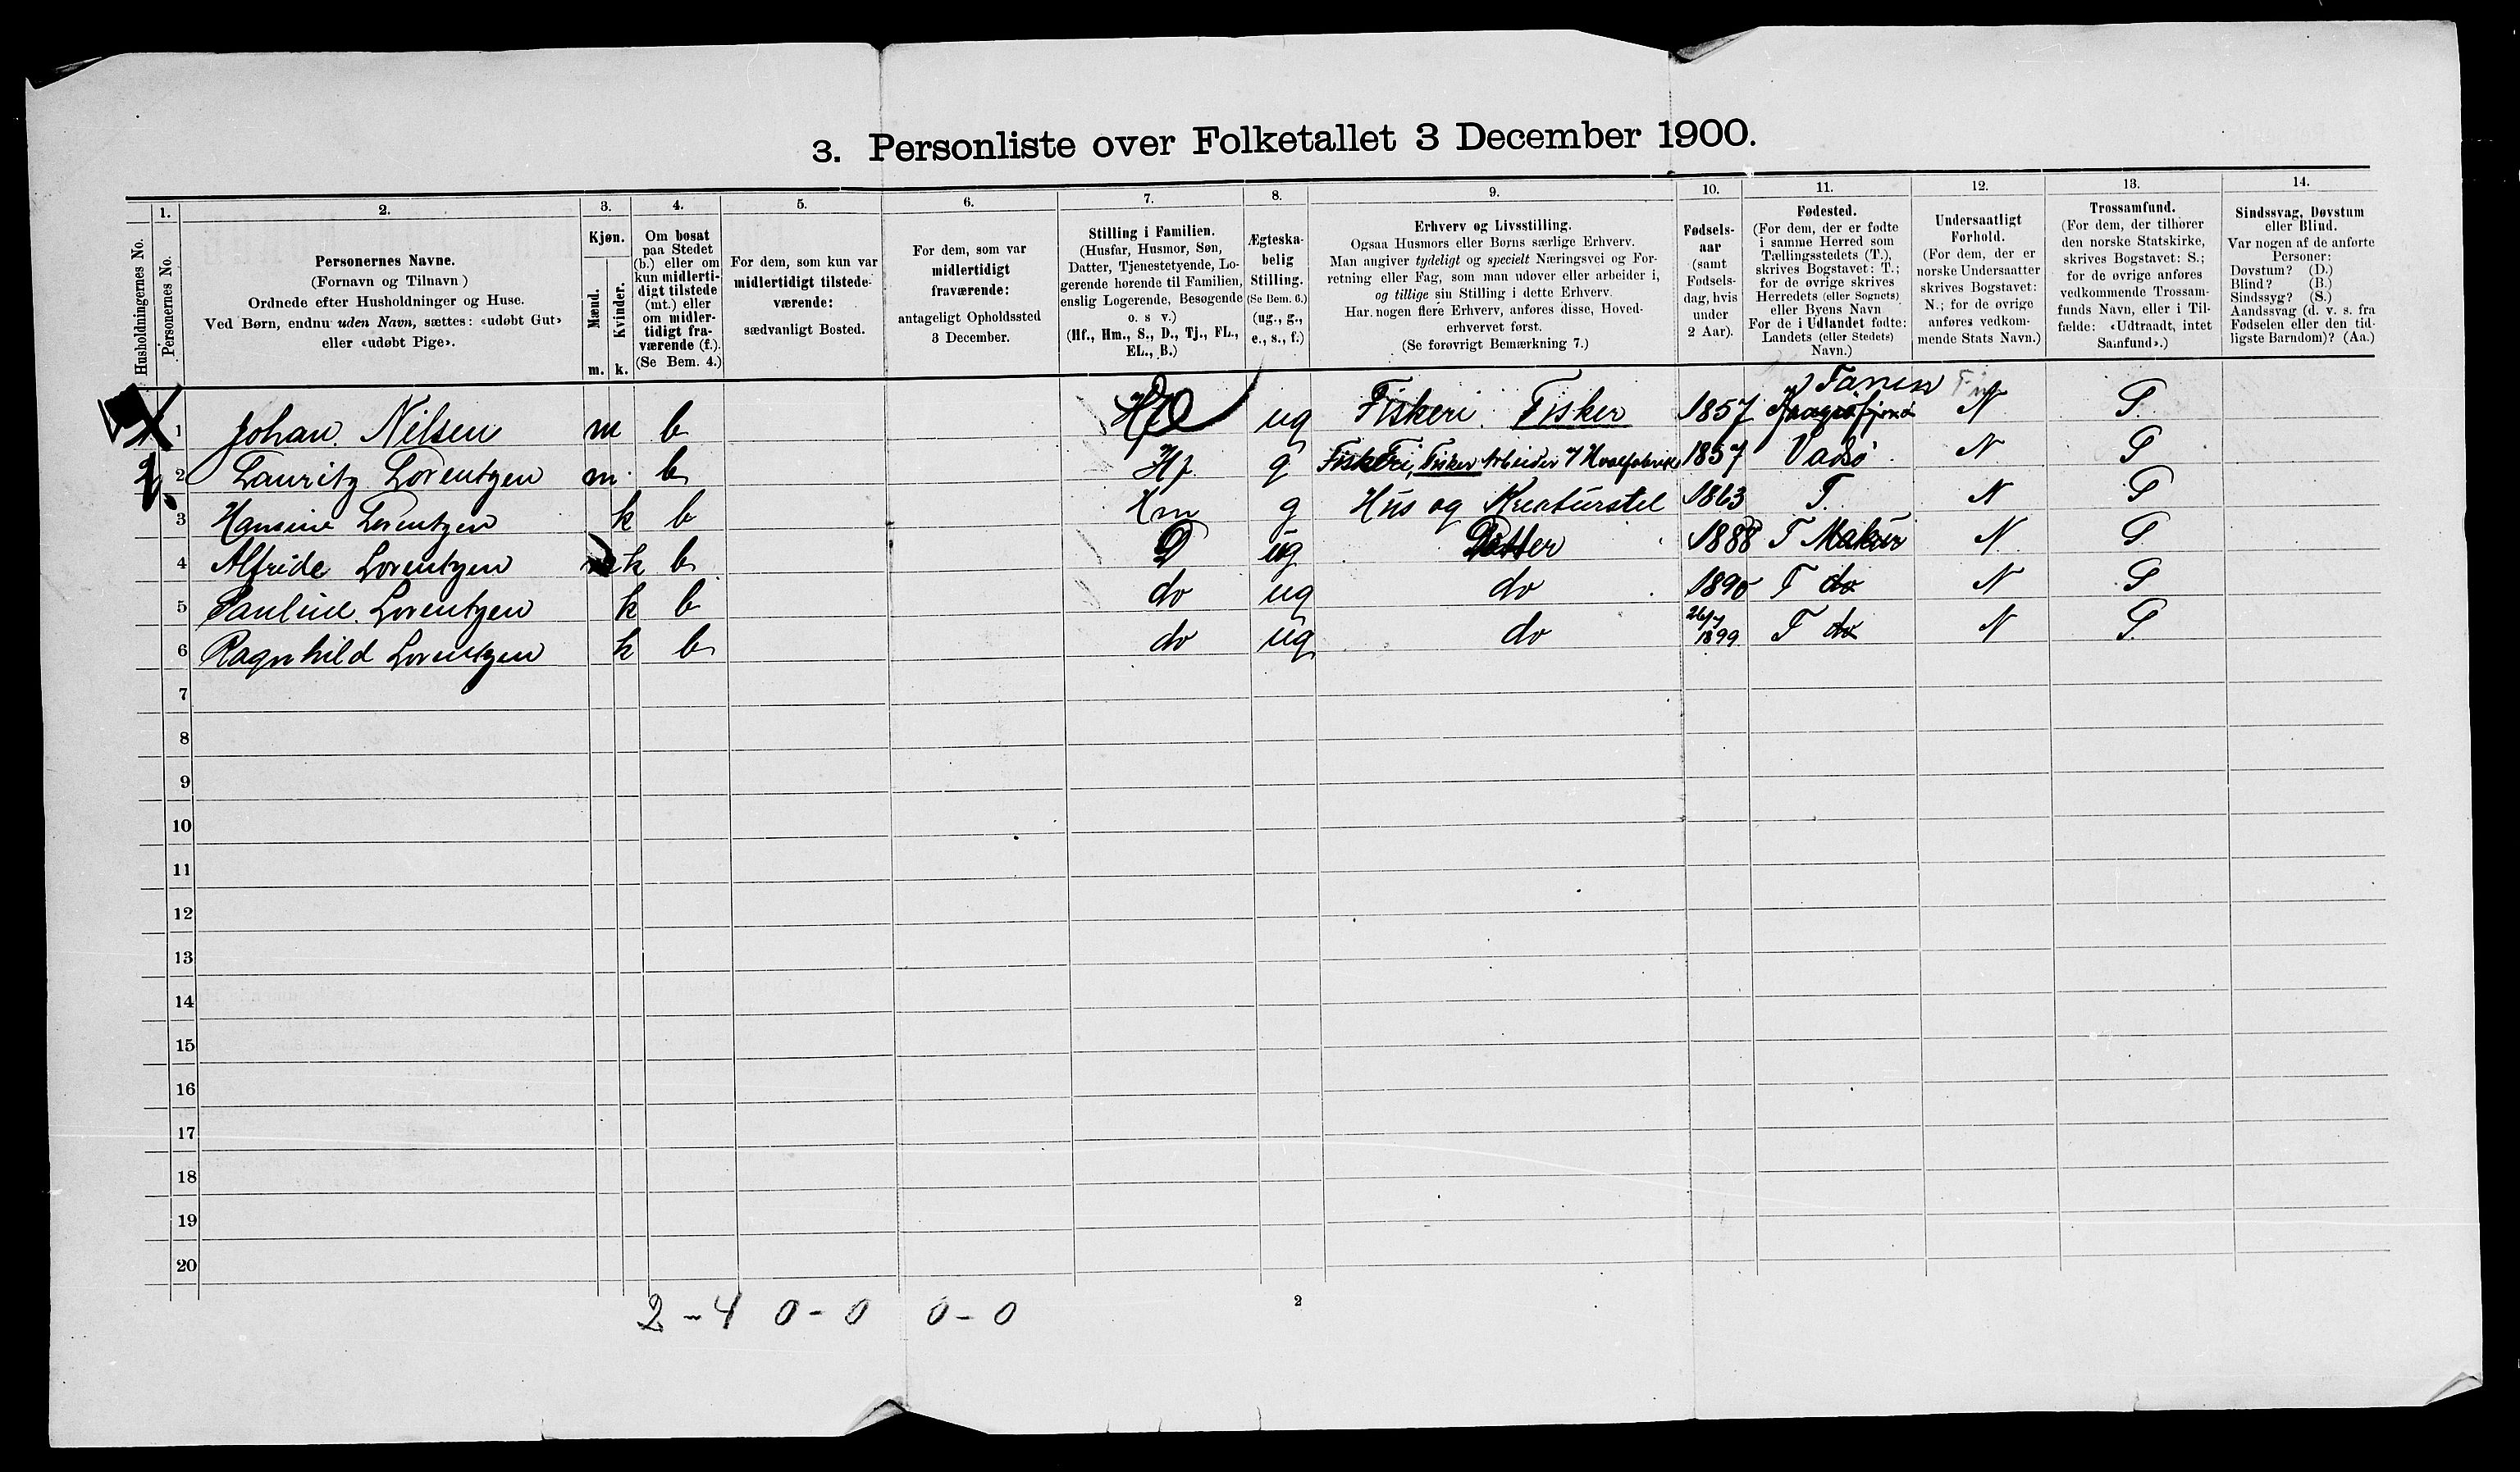 3. Personliste over Folketallet 3 December 1900.
Husholdningernes No.
1.
Personernes No.
2.
Personernes Navne.
(Fornavn og Tilnavn)
Ordnede efter Husholdninger og Huse.
Ved Børn, endnu uden Navn, sættes: «udøbt Gut»
eller «udøbt Pige».
3.
Kjøn.
Mænd.
Kvinder.
m. k.
4.
Om bosat
paa Stedet
(b.) eller om
kun midlerti-
digt tilstede
(mt.) eller
om midler-
tidigt fra-
værende (f.).
(Se Bem. 4.)
5.
For dem, som kun var
midlertidigt tilstede-
værende:
sædvanligt Bosted.
6.
For dem, som var
midlertidigt
fraværende:
antageligt Opholdssted
3 December.
7.
Stilling i Familien.
(Husfar, Husmor, Søn,
Datter, Tjenestetyende, Lo-
gerende hørende til Familien,
enslig Logerende, Besøgende
o. s v.)
(Hf., Hm., S., D., Tj., FL.,
EL., B.)
8.
Ægteska-
belig
Stilling.
(Se Bem. 6.)
(ug., g.,
e., s., f.)
9.
Erhverv og Livsstilling.
Ogsaa Husmors eller Børns særlige Erhverv.
Man angiver tydeligt og specielt Næringsvei og For-
retning eller Fag, som man udøver eller arbeider i,
og tillige sin Stilling i dette Erhverv.
Har nogen flere Erhverv, anføres disse, Hoved-
erhvervet først.
(Se forøvrigt Bemærkning 7.)
10.
Fødsels-
aar
(samt
Fødsels-
dag, hvis
under
2 Aar).
11.
Fødested.
(For dem, der er fødte
i samme Herred som
Tællingsstedets (T.),
skrives Bogstavet: T.;
for de øvrige skrives
Herredets (eller Sognets)
eller Byens Navn
For de i Udlandet fødte:
Landets (eller Stedets)
Navn.)
12.
Undersaatligt
Forhold.
(For dem, der er
norske Undersaatter
skrives Bogstavet:
N.; for de øvrige
anføres vedkom-
mende Stats Navn.)
13.
Trossamfund.
(For dem, der tilhører
den norske Statskirke,
skrives Bogstavet: S.;
for de øvrige anføres
vedkommende Trossam-
funds Navn, eller i Til-
fælde: «Udtraadt, intet
Samfund».)
14.
Sindssvag, Døvstum
eller Blind.
Var nogen af de anførte
Personer:
Døvstum? (D.)
Blind? (B.)
Sindssyg? (S.)
Aandssvag (d. v. s. fra
Fødselen eller den tid-
ligste Barndom)? (Aa.)
1 Johan Nilsen m b ug Fiskeri. Fisker 1857 Tanen N S.
2. 2 Lauritz Lorentzen m b Hf g Fiskeri, Fisker Arbeider v/ Hvalfabrik 1857 Vadsø N S
3 Hansine Lorentzen k b Hm g Hus og Kreaturstel 1863 T. N S
4 Alfride Lorentzen k b D ug Datter 1888 T Makur N. S
5 Pauline Lorentzen k b do ug do 1890 T do N S
6 Ragnhild Lorentzen k b do ug do 26/7 1899. T do N S.
7
8
9
10
11
12
13
14
15
16
17
18
19
20
2 - 4 0 - 0 0 - 0
2